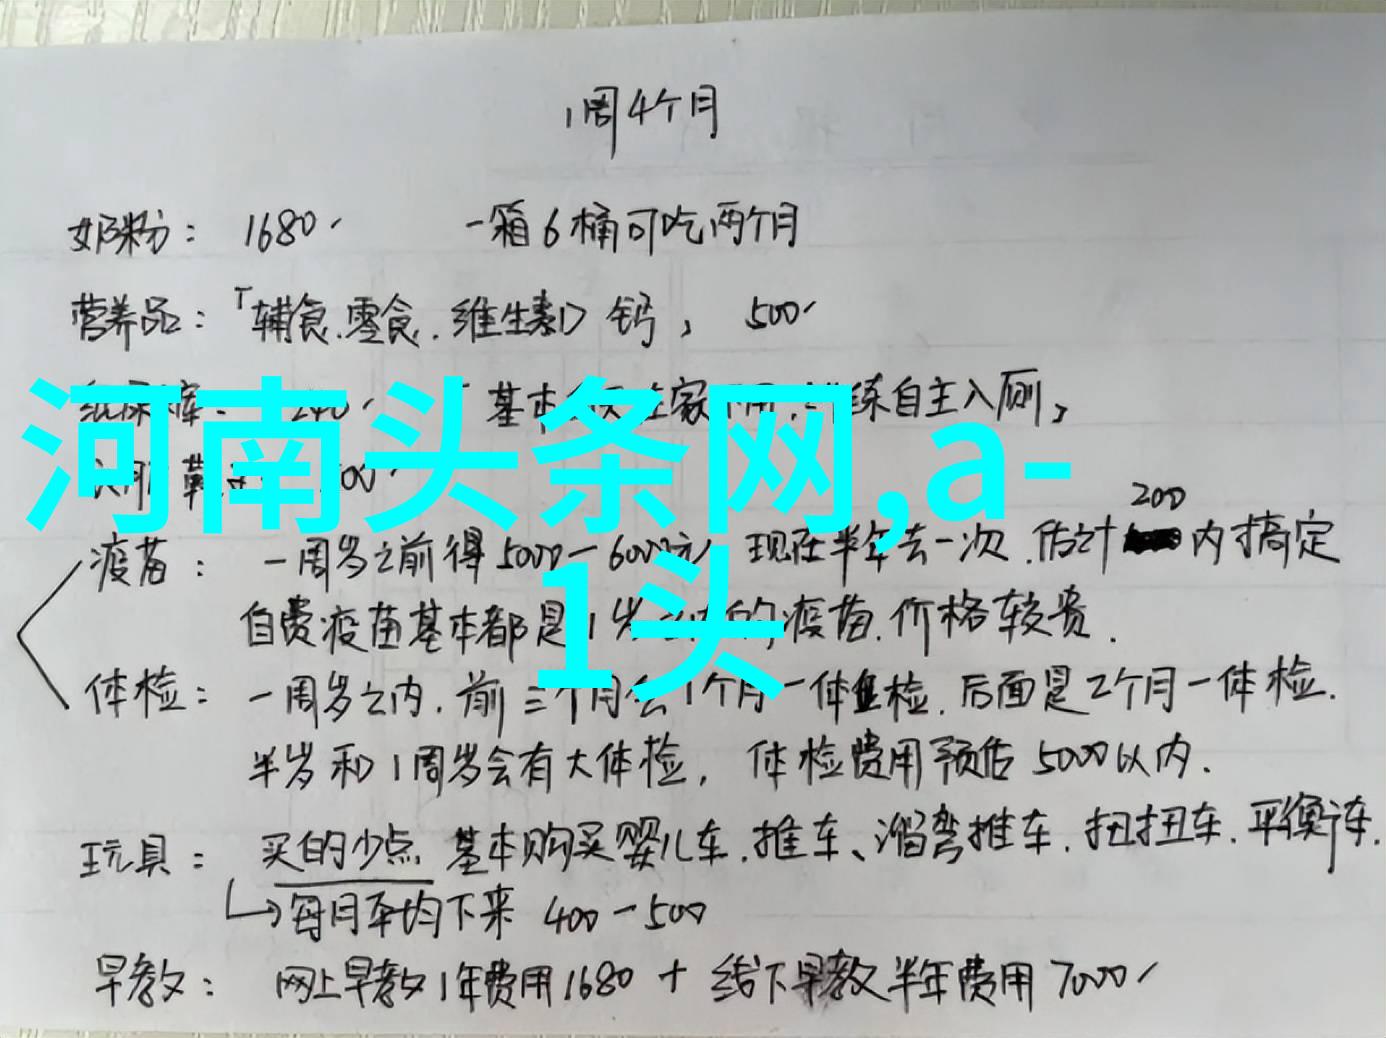 1周4个月
奶粉： 1680、 一箱6桶可吃两个月
营养品：「辅食.零食.维生素D 钙, 500、
240、 「基本 在家 练自主入厕,
河南头条网,a-
1头
疫苗： 一周岁之前得5000-6000元 现在半年去一次.估计 200 内搞定
自费疫苗基本都是1岁 的疫苗.价格较贵.
体检： 一周岁之内.前三个月会1个月一体检.后面是2个月一体检.
半岁和1周岁会有大体检, 体检费用预估5000以内.
玩具： 买的少点 基本购买婴儿车.推车、溜弯推车.扭扭车.平衡车.
每月平均下来 400-500
早教： 网上早教1年费用1680+线下早教半年费用7000、